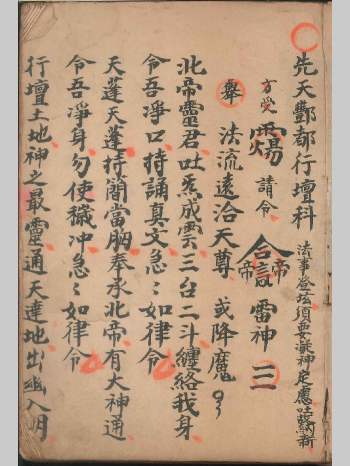 先天酆都行壇科
法事登坛須要凝神定慮
方受 請令 雷神 三
舉 法流遠洽天尊 或降魔
北帝靈君吐炁成雲三台二斗纏絡我身
令吾淨口持誦真文急〻如律令
天蓬天蓬持蕳當胸奉承北帝有大神通
令吾淨身勿使穢冲急〻如律令
行壇土地神之最靈通天達地出幽入明